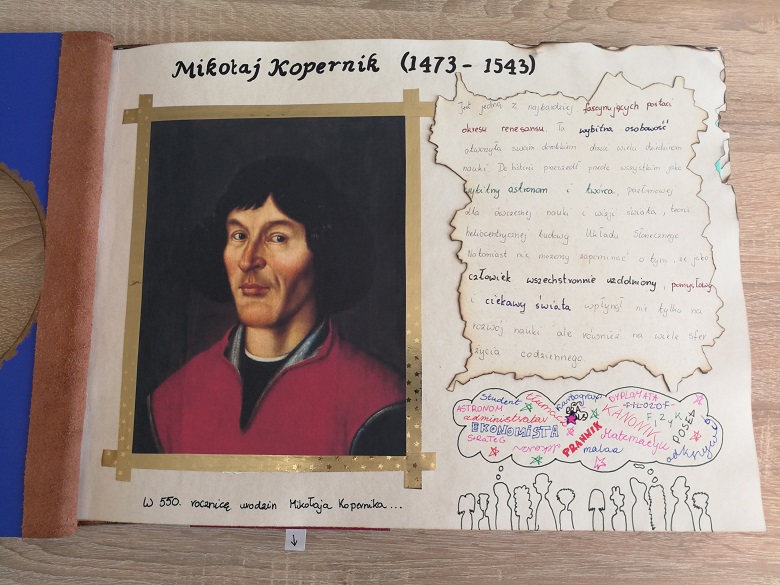 Mikołaj Kopernik (1473 - 1543)
Jest jedną z najbardziej fascynujących postaci
okresu renesansu. Ta wybitna osobowość
otworzyła swoim dorobkiem drzwi wielu dziedzinom
nauki. Do historii przeszedł przede wszystkim jako
wybitny astronom i twórca, przełomowej
dla ówczesnej nauki i wizji świata, teorii
heliocentrycznej budowy Układu Słonecznego.
Natomiast nie możemy zapominać o tym, że jako
człowiek wszechstronnie uzdolniony, pomysłowy
i ciekawy świata wpłynął nie tylko na
rozwój nauki ale również na wiele sfer
życia codziennego.
Student Tłumacz kartograf DYPLOMATA
ASTRONOM FILOZOF
administrator KANONIK FIZYK
EKONOMISTA POSEŁ
STRATEG PRAWNIK Matematyk
malarz odkrywca
W 550. rocznicę urodzin Mikołaja Kopernika...